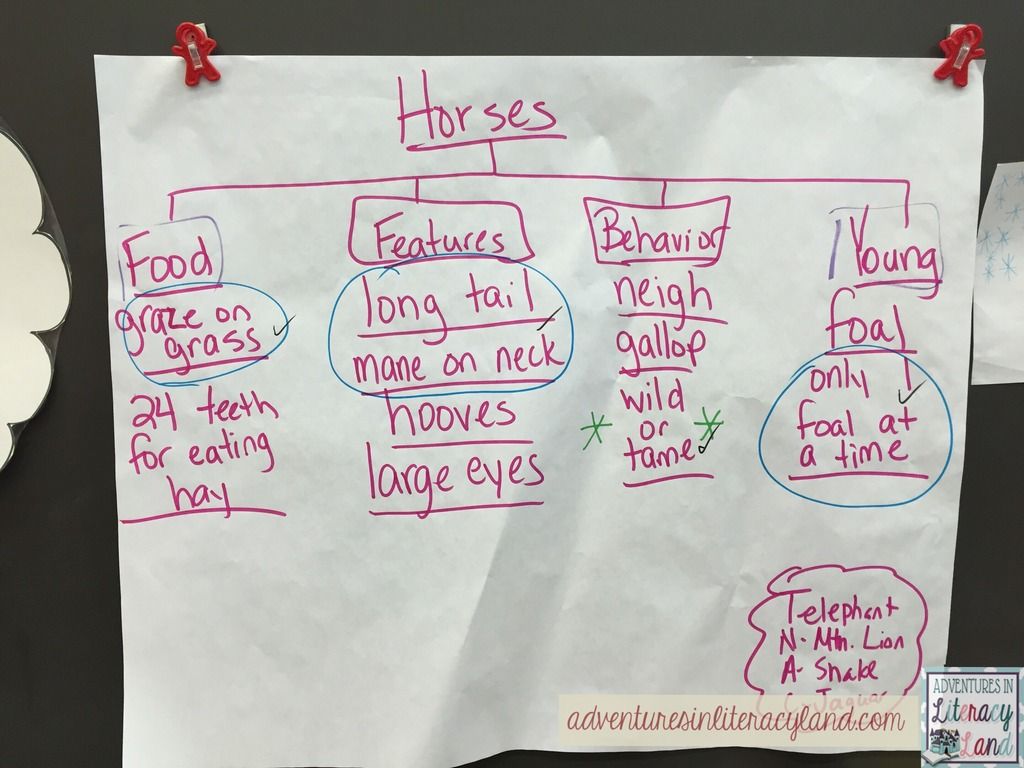 Horses
Food
graze on
grass
24 teeth
for eating
hay
Features
long tail
mane on neck
hooves
large eyes
Behavior
neigh
gallop
wild
or
tame
Young
foal
only 1
foal at
a time
Telephant
N- Mtn. Lion
A- Snake
Jaguar
adventuresinliteracyland.com
ADVENTURES IN
Literacy
Land